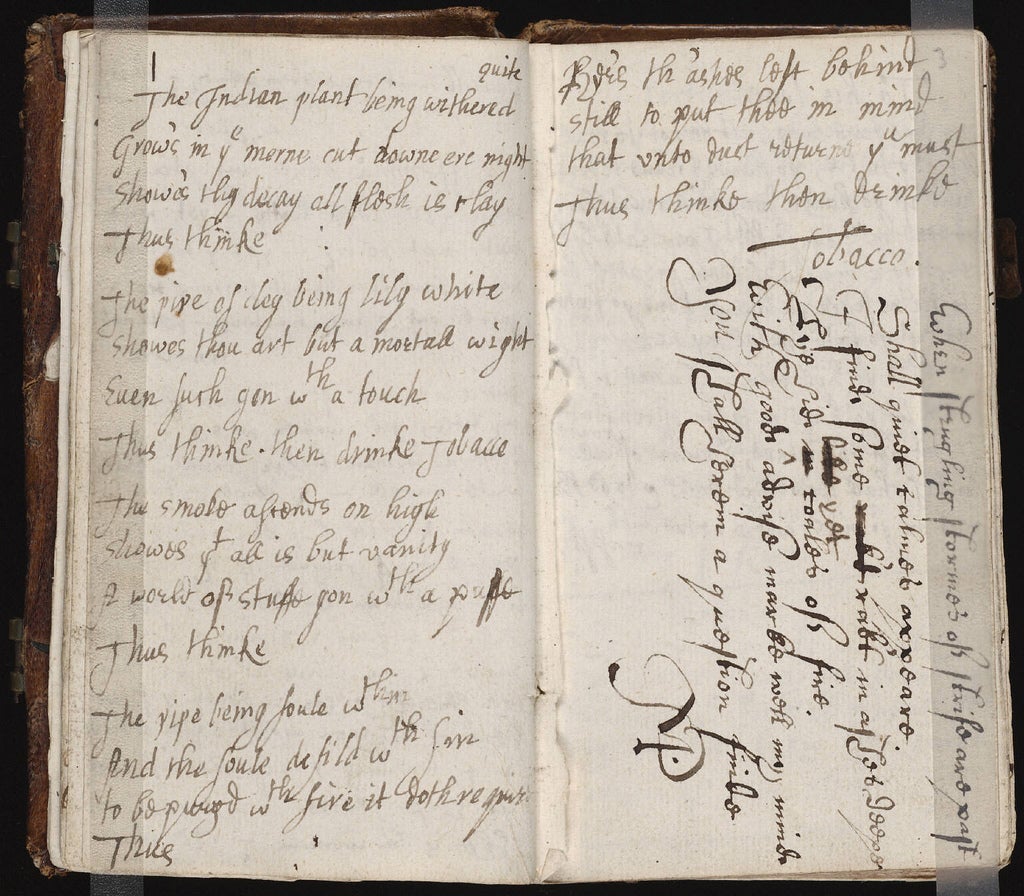 1
quite
The Indian plant being withered
Grows in yᵉ morne cut downe ere night
Showes thy decay all flesh is clay
Thus thinke
The pipe of cley being lily white
Showes thou art but a mortall wight
Euen such gon wᵗʰ a touch
Thus thinke. then drinke Tobacco
The smoke asends on high
Showes yᵗ all is but vanity
A world of stuffe gon wᵗʰ a puffe
Thus thinke
The pipe being foule wᵗʰin
And the soule defild wᵗʰ sin
to be purgd wᵗʰ fire it doth requir
Thus
3
th'ashes left behind
still to put thee in mind
that vnto dust returne yᵘ must
Thus thinke then drinke
Tobacco.
When strugling stormes of strife are past
Shall quiet calmes appeare.
I find some in deepe
of fire.
with good advise marke well my minde
You shall a question finde